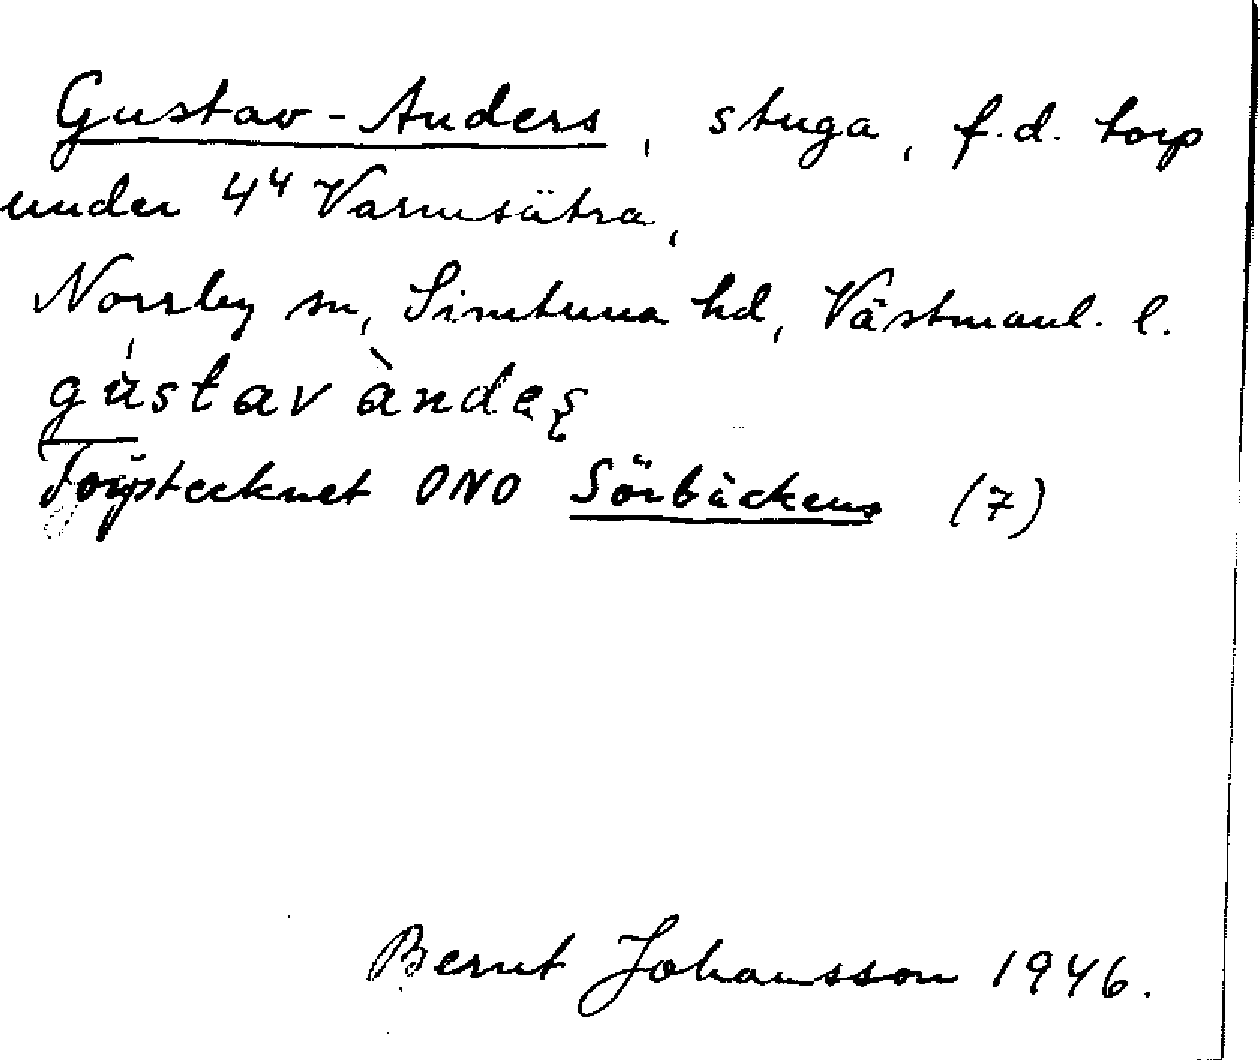 Gustav-Anders, stuga, f.d. torp
under 4⁴ Varmsätra,
Norrby sn, Simtuna hd, Västmanl. l.
gùstav àndeș
Torptecknet ONO Sörbäckens (7)
Bernt Johansson 1946.